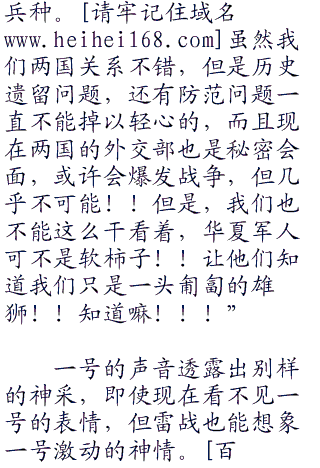 兵种。[请牢记住域名
www.heihei168.com]虽然我
们两国关系不错，但是历史
遗留问题，还有防范问题一
直不能掉以轻心的，而且现
在两国的外交部也是秘密会
面，或许会爆发战争，但几
乎不可能！！但是，我们也
不能这么干看着，华夏军人
可不是软柿子！！让他们知
道我们只是一头匍匐的雄
狮！！知道嘛！！！”
一号的声音透露出别样
的神采，即使现在看不见一
号的表情，但雷战也能想象
一号激动的神情。[百